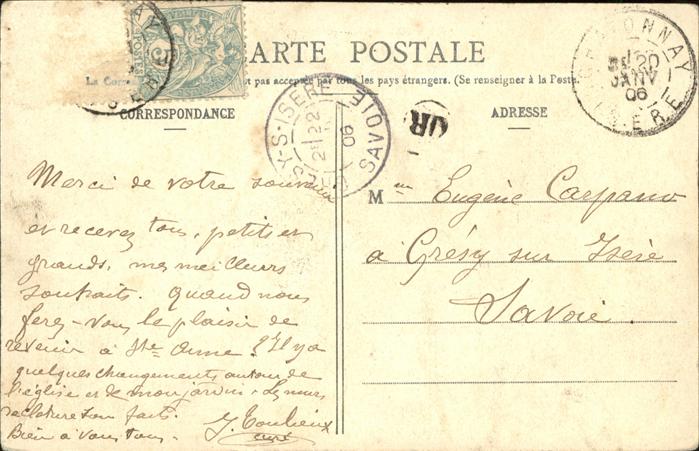 CARTE POSTALE
La Corres est pas acceptée par tous les pays étrangers. (Se renseigner à la Poste.
CORRESPONDANCE
ADRESSE
20
JANV
06
ISERE
GRESY-S-ISERE
SAVOIE
22
06
OR
Merci de votre souvenir
et recevez tous, petits et
grands, mes meilleurs
souhaits. Quand nous
ferez-vous le plaisir de
revenir à Ste Anne ? Il y a
quelques changements autour de
l'église et de mon jardin. Les murs
de clôture son faits.
Bien à vous tous.
curé
M
Eugène Carpano
à Grésy sur Isère
Savoie.